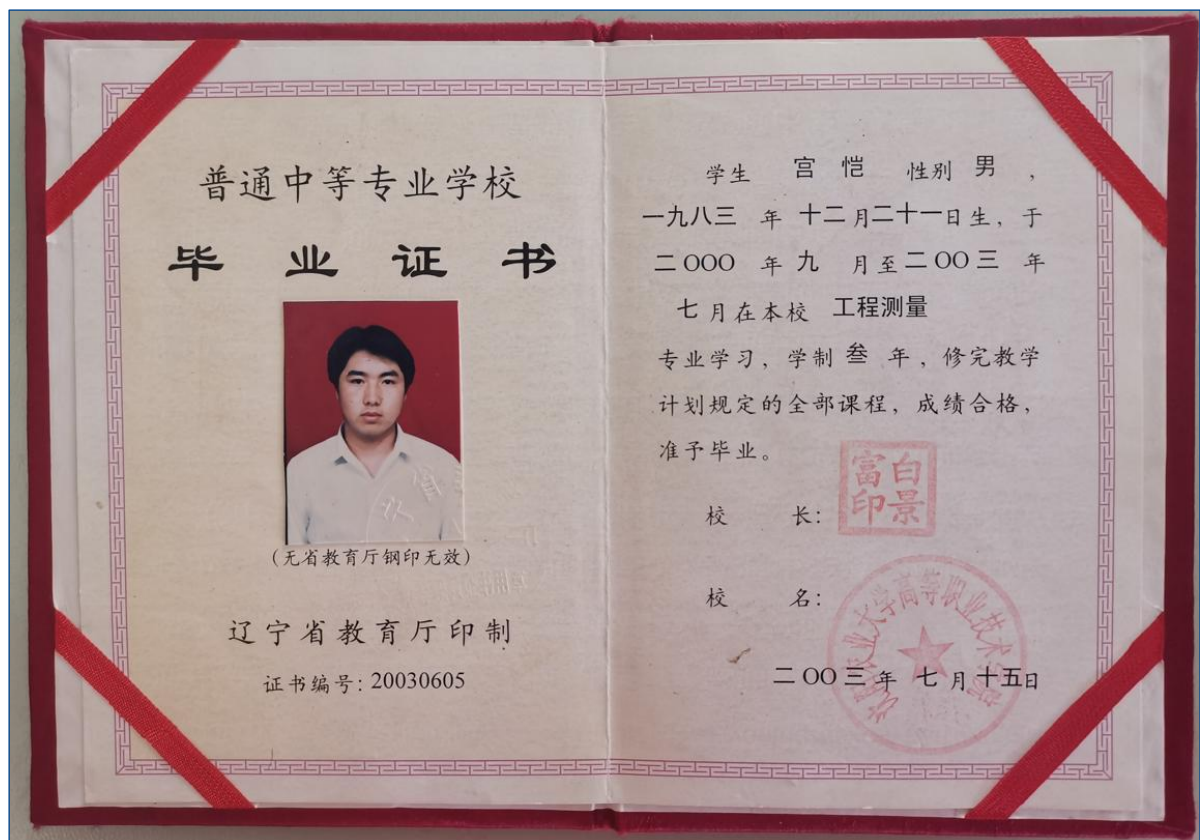 普通中等专业学校
毕业证书
(无省教育厅钢印无效)
辽宁省教育厅印制
证书编号: 20030605
学生 宫恺 性别 男 ,
一九八三 年 十二 月 二十一 日生, 于
二OOO 年 九 月至 二OO三 年
七 月在本校 工程测量
专业学习, 学制 叁 年, 修完教学
计划规定的全部课程, 成绩合格,
准予毕业。
校 长:
白景富印
校 名:
沈阳农业大学高等职业技术学院
二OO三 年 七 月 十五 日